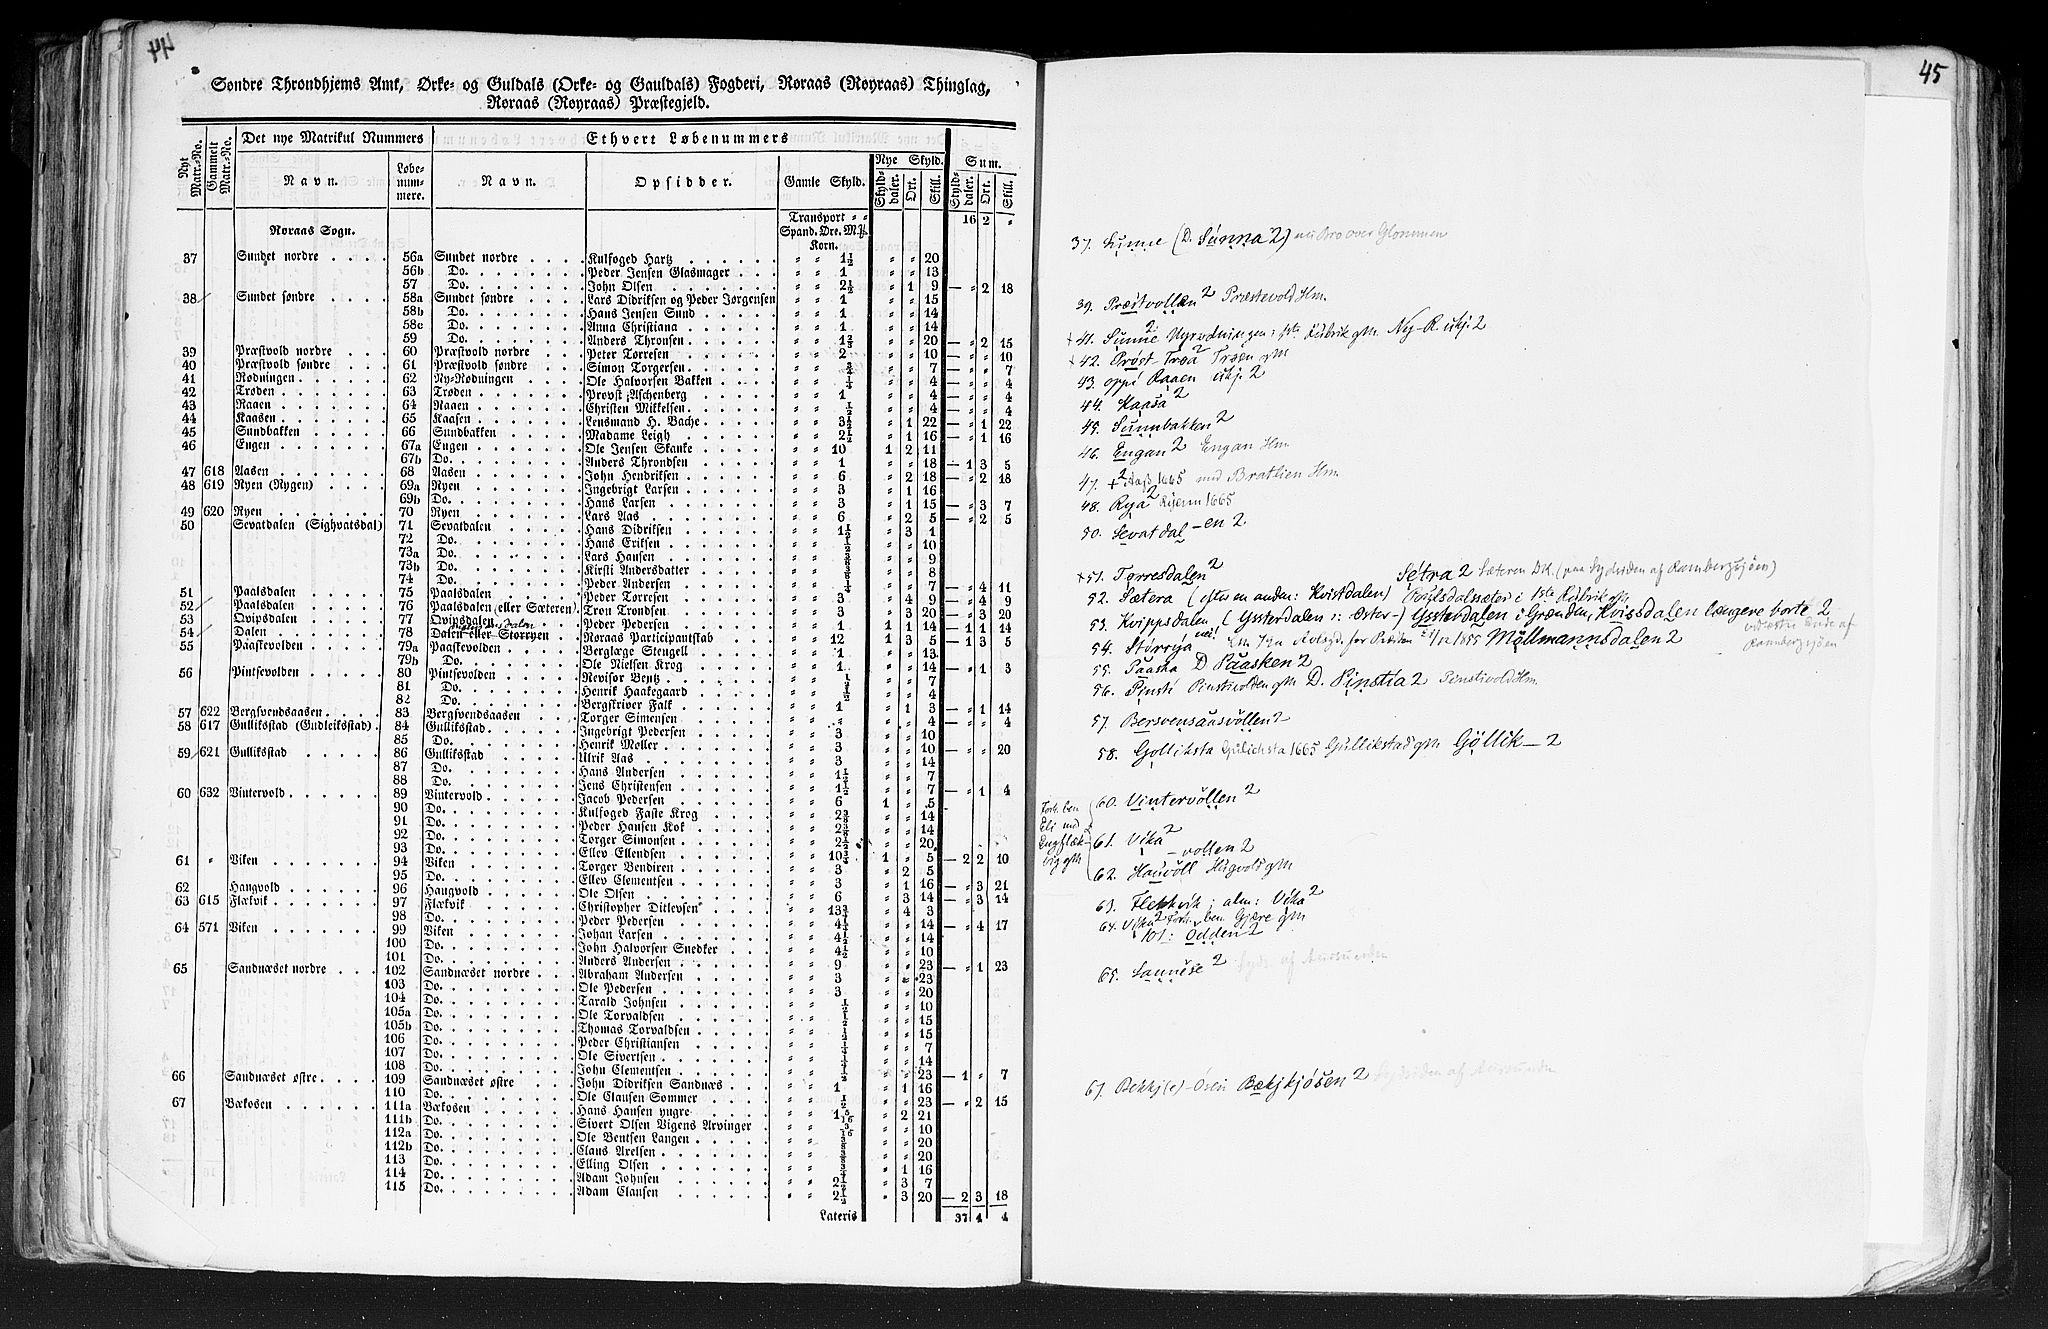 44
Søndre Throndhjems Amt, Ørke- og Guldals (Orke- og Gauldals) Fogderi, Røraas (Røyraas) Thinglag,
Røraas (Røyraas) Præstegjeld.
Nyt Matr.-No. Gammelt Matr.-No. Det nye Matrikul Nummers Ethvert Løbenummers
Navn. Løbe-num-mere. Navn. Opsidder. Gamle Skyld. Nye Skyld. Sum.
Skyld-daler. Ort. Skill. Skyld-daler. Ort. Skill.
Transport " " 16 2 "
Røraas Sogn. Spand. Øre. M.
Korn.
37 Sundet nordre 56a Sundet nordre Kulfoged Hartz " " 1½ " " 20
56b Do. Peder Jensen Glasmager " " 1 " " 13
57 Do. John Olsen " " 2½ " 1 9 — " 2 18
38 Sundet søndre 58a Sundet søndre Lars Didriksen og Peder Jørgensen " " 1 " " 15
58b Do. Hans Jensen Sund " " 1 " " 14
58c Do. Anna Christiana " " 1 " " 14
59 Do. Anders Thronsen " " 1⅔ " " 20 — " 2 15
39 Præstvold nordre 60 Præstvold nordre Peter Torresen " " 2 " " 10 — " " 10
40 Præstvold søndre 61 Præstvold søndre Simon Torgersen " " ¾ " " 7 — " " 7
41 Rødningen 62 Ny-Rødningen Ole Halvorsen Bakken " " ¼ " " 4 — " " 4
42 Trøden 63 Trøden Provst Aschenberg " " 1 " " 4 — " " 4
43 Raaen 64 Raaen Christen Mikkelsen " " ½ " " 4 — " " 4
44 Kaasen 65 Kaasen Lensmand H. Bache " " 3½ " 1 22 — " 1 22
45 Sundbakken 66 Sundbakken Madame Leigh " " 2½ " 1 16 — " 1 16
46 Engen 67a Engen Ole Jensen Skanke " " 10 1 2 11
67b Do. Anders Throndsen " " 1 " " 18 — 1 3 5
47 618 Aasen 68 Aasen John Hendriksen " " 6 " 2 18 — " 2 18
48 619 Ryen (Rygen) 69a Ryen Ingebrigt Larsen " " 3 " 1 16
69b Do. Hans Larsen " " 3 " 1 15 — " 3 7
49 620 Ryen 70 Ryen Lars Aas " " 6 " 2 5 — " 2 5
50 Sevatdalen (Sighvatsdal) 71 Sevatdalen Hans Didriksen " " 1½ " 3 1
72 Do. Hans Eriksen " " ½ " " 10
73a Do. Lars Hansen " " " " 9
73b Do. Kirsti Andersdatter " " " " 8
74 Do. Peder Andersen " " ¼ " " 7 — " 4 11
51 Paalsdalen 75 Paalsdalen Peder Torresen " " 3 " 4 9 — " 4 9
52 Paalsdalen 76 Paalsdalen (eller Sæteren) Tron Trondsen " " 3 " 3 20 — " 3 20
53 Qvipsdalen 77 Qvipsdalen Peder Pedersen " " 1 1 1 14 — 1 1 14
54 Dalen 78 Dalen eller Storryen Røraas Participantskab " " 12 1 3 5 — 1 3 5
55 Paastevolden 79a Paastevolden Berglæge Stengell " " 1 " " 13
79b Do. Ole Nielsen Krog " " " " 14 — " 1 3
56 Pintsevolden 80 Pintsevolden Revisor Bentz " " ½ " " 7
81 Do. Henrik Haakegaard " " ½ " " 4
82 Do. Bergskriver Falk " " 1 " 1 3 — " 1 14
57 622 Bergsvendsaasen 83 Bergsvendsaasen Torger Simensen " " " " " 4 — " " 4
58 617 Gulliksstad (Gudleiksstad) 84 Gulliksstad Ingebrigt Pedersen " " 3 " " 10
85 Do. Henrik Møller " " 3 " " 10 — " " 20
59 621 Gulliksstad 86 Gulliksstad Ulrik Aas " " 3 " " 14
87 Do. Hans Andersen " " 1½ " " 7
88 Do. Jens Christensen " " 1½ " " 7 — " 1 4
60 632 Vintervold 89 Vintervold Jacob Pedersen " " 6 1 " 5
90 Do. Kulfoged Faste Krog " " " " 14
91 Do. Peder Hansen Kok " " " " 14
92 Do. Torger Simonsen " " 2½ " " 20
93 Do. Ellev Ellendsen " " 10¾ 1 " 5 — 2 2 10
61 " Viken 94 Viken Torger Bendixen " " 3 " 2 5
95 Do. Ellev Clementsen " " 3 " 1 16 — " 3 21
62 Haugvold 96 Haugvold Ole Olsen " " 6 " 3 14 — " 3 14
63 615 Flækvik 97 Flækvik Christopher Ditlevsen " " 13¾ " 4 3
98 Do. Peder Pedersen " " 4½ " " 14 — " 4 17
64 571 Viken 99 Viken Johan Larsen " " 4½ " " 14
100 Do. John Halvorsen Snedker " " 4½ " " 10
101 Do. Anders Andersen " " 9 " " 23 — " 1 23
65 Sandnæset nordre 102 Sandnæset nordre Abraham Andersen " " 3 " " 23
103 Do. Ole Pedersen " " 3 " " 20
104 Do. Tarald Johnsen " " ½ " " 10
105a Do. Ole Torvaldsen " " ½ " " 15
105b Do. Thomas Torvaldsen " " ½ " " 15
106 Do. Peder Christiansen " " ¼ " " 7
107 Do. Ole Sivertsen " " ¼ " " 14
108 Do. John Clementsen " " ½ " " 23 — 1 " 7
66 Sandnæset østre 109 Sandnæset østre John Didriksen Sandnæs " " 1 " 1 16
110 Do. Ole Clausen Sommer " " ½ " " 23 — " 2 15
67 Bækosen 111a Bækosen Hans Hansen yngre " " " 2 21
111b Do. Sivert Olsen Vigens Arvinger " " " " 10
112a Do. Ole Bentsen Langen " " " " 20
112b Do. Claus Axelsen " " " " 20
113 Do. Elling Olsen " " " 1 16
114 Do. Adam Johnsen " " 2½ " 3 7
115 Do. Adam Clausen " " 2½ " 3 20 — 2 3 18
Lateris 37 4 4
45
37. Sunne (D. Sunna 2) ni Bro over Glommen
39. Præstvollen 2 Præstevold Hm.
+ 41. Sunne 2 Nyrødningen: 1ste Rubrik gM. Ny-R. ukj. 2
+ 42. Prøst-Trøa 2 Trøen gM
43. oppi Raaen ukj. 2
44. Kaasa 2
45. Sunnbakken 2
46. Engan 2 Engan Hm.
47. + 2 1665 med Bratlien Hm.
48. Rya 2 Ryenn 1665
50. Sevatdal-en 2
+ 51. Torresdalen 2 Sétra 2 Sæteren DK. (paa Sydsiden af Rambergsjøen)
52. Sætera (efter en anden: Kvistdalen) Povlsdalssæter i 1ste Rubrik gM
53. Kvippsdalen, (Ysterdalen ɔ: Øster-) Ysterdalen i Grænden, Kvissdalen længere borte 2
54. Størryá 1855 Møllmannsdalen 2 Ende af Rambergsjøen
55. Paaska D Paasken 2
56. Pinsti Pinstivolden gM D. Pinstia 2 Pinstivold Hm.
57. Bersvensaasvollen 2
58. Golliksta Gulichsta 1665 Gullikstad gM Göllik-2
60. Vintervöllen 2
Forb. ben
Eli med
Engflæk-
vig gM
61. Vika 2
-vollen 2
62. Hauvöll Hugvold gM
63. Flekkvik; alm: Vika 2
64. Vika 2 Forb. ben Gjære gM
101: Odden 2
65. Sannese 2 Syds. af Aursunden
67. Bekkj(e)-Osen Bækjkjosen 2 Sydsiden af Aursunden